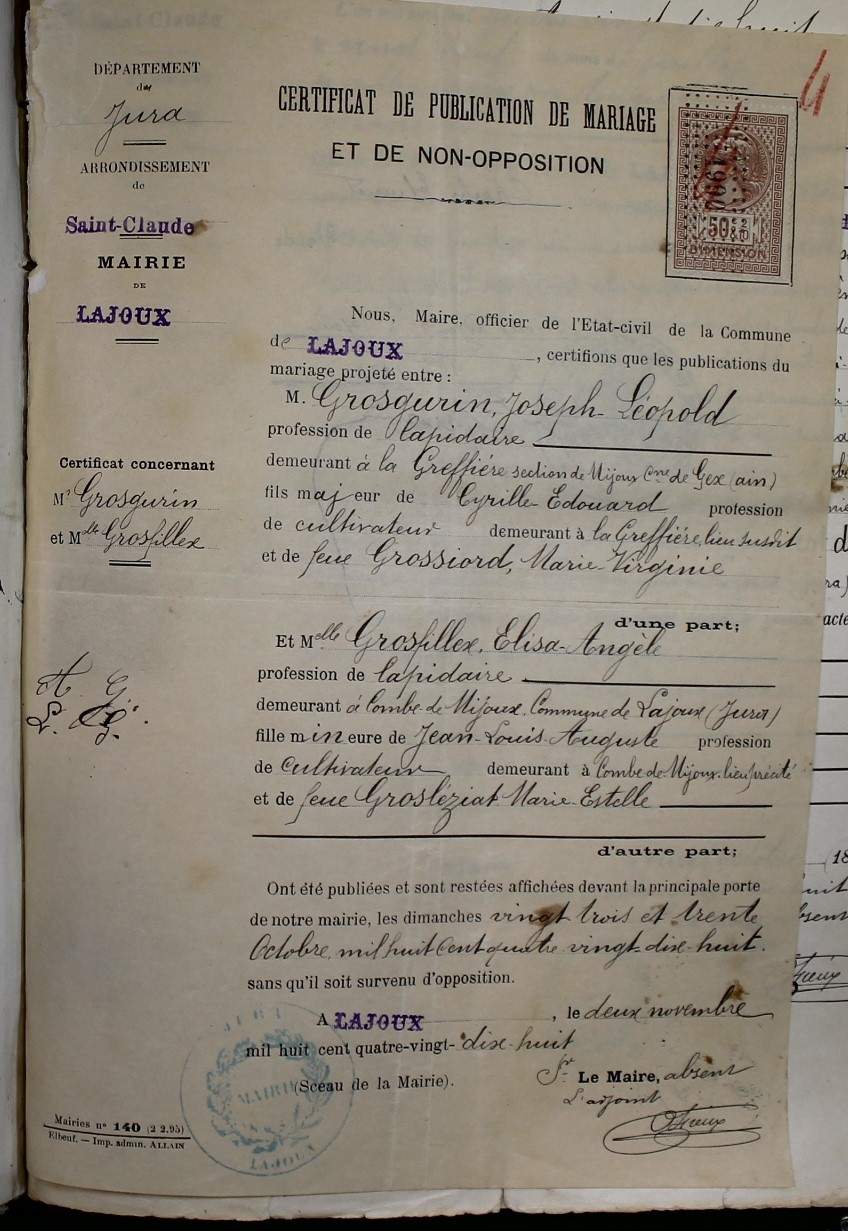 DÉPARTEMENT
du
Jura
ARRONDISSEMENT
de
Saint-Claude
MAIRIE
DE
LAJOUX
Certificat concernant
Mr Grosgurin
et Mlle Grosfillex
A. G.
L. G.
Mairies no 140 (2 2.95)
Elbeuf. — Imp. admin. ALLAIN
CERTIFICAT DE PUBLICATION DE MARIAGE
ET DE NON-OPPOSITION
4
50 c
DIMENSION
Nous, Maire, officier de l'Etat-civil de la Commune
de LAJOUX, certifions que les publications du
mariage projeté entre :
M. Grosgurin, Joseph-Léopold
profession de lapidaire
demeurant à la Greffière section de Mijoux Cne de Gex (ain)
fils majeur de Cyrille-Edouard profession
de cultivateur demeurant à la Greffière, lieu susdit
et de feue Grossiord, Marie-Virginie
d'une part;
Et Mdlle Grosfillex, Elisa-Angèle
profession de lapidaire
demeurant à Combe-de-Mijoux, Commune de Lajoux (Jura)
fille mineure de Jean-Louis-Auguste profession
de Cultivateur demeurant à Combe de Mijoux, lieu précité
et de feue Grosléziat Marie-Estelle
d'autre part;
Ont été publiées et sont restées affichées devant la principale porte
de notre mairie, les dimanches vingt trois et trente
Octobre, mil huit cent quatre vingt-dix-huit.
sans qu'il soit survenu d'opposition.
A LAJOUX, le deux novembre
mil huit cent quatre-vingt-dix-huit
(Sceau de la Mairie).
Pr Le Maire, absent
L'adjoint
MAIRIE